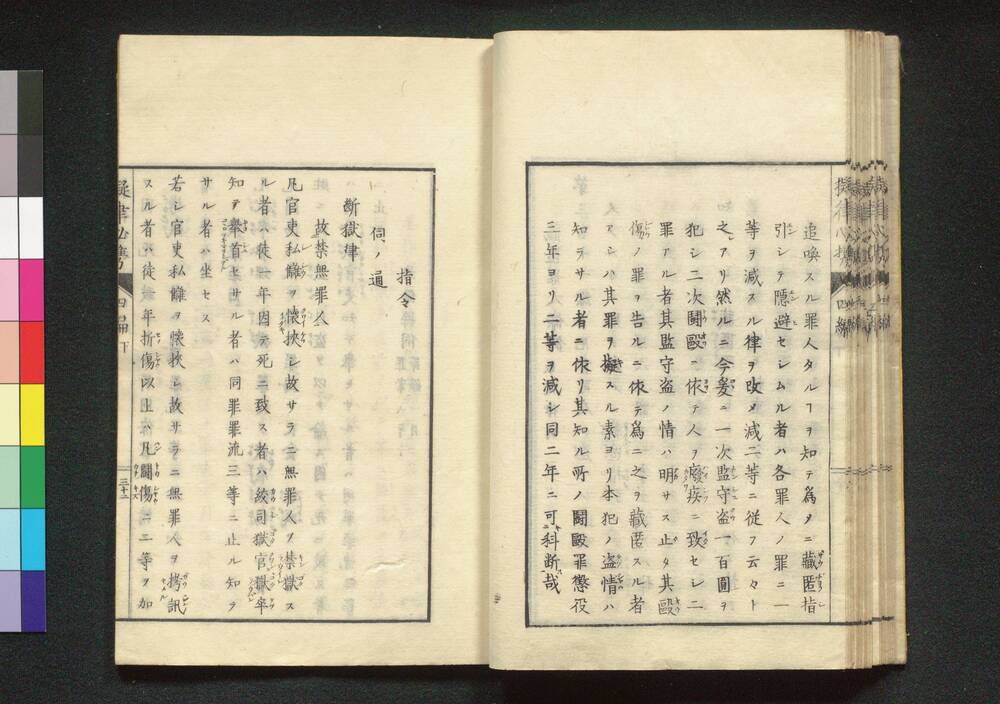 追喚スル罪人タルヿヲ知テ爲メニ藏匿指
引シテ隱避セシムル者ハ各罪人ノ罪ニ一
等ヲ減スル律ヲ攺メ減二等ニ從フ云々ト
之アリ然ルニ今爰ニ一次監守盗一百圓ヲ
犯シ二次鬪毆ニ依テ人ヲ癈疾ニ致セシ二
罪アル者其監守盗ノ情ハ明サス止タ其毆
傷ノ罪ヲ告ルニ依テ爲ニ之ヲ藏匿スル者
アレハ其罪ヲ擬スル素ヨリ本犯ノ盗情ハ
知ラサル者ニ依リ其知ル所ノ鬪毆罪懲役
三年ヨリ二等ヲ減シ同二年ニ可科断哉
指令
伺ノ通
断獄律
故禁無罪人
凡官吏私讎ヲ懷挾シ故サラニ無罪人ヲ禁獄ス
ル者ハ徒一年因テ死ニ致ス者ハ絞司獄官獄卒
知テ舉首セサル者ハ同罪罪流三等ニ止ル知ラ
サル者ハ坐セス
若シ官吏私讎ヲ懷挾シ故サラニ無罪人ヲ拷訊
スル者ハ徒一年折傷以上ハ凡鬪傷ニ二等ヲ加
擬律必携
四編下
三十二